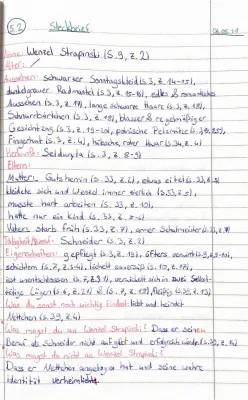 5.2 Steckbrief
Name: Wenzel Strapinski (S.9, z.2)
Alter:
Aussehen: schwarzer Sonntagskleid (S.3, z.14-15),
dunkelgrauer Radmantel (S.3, z.15-16), edles & romantisches
Aussehen (S.3, z.17), lange schwarze Haare (S.3, z.18),
Schnurbärtchen (S.3, z.19), blasser & regelmäßiger
Gesichtzug (S.3, z.19-20), polnische Pelzmütze
Fingerhut (S.3, z.4), hübscher, roter Mund (S.34, z.4)
Herkunft: Seldwyla (S.3, z.8-9)
Eltern:
Mutter: Gutsherrin (S.33, z.2), etwas eitel (S.33, z.5)
kleidete sich und Wenzel immer zierlich (S.33, z.5),
musste hart arbeiten (S.33, z.10),
hatte nur ein Kind
Vater: starb früh (S.33, z.7), armer Schulmeister
Tätigkeit/Beruf: Schneider (S.3, z.2)
Eigenschaften: gepflegt (S.3, z.19), öfters verwirrt
schüchtern (S.7, z.3-4), lächelt
ist unentschlossen verstrickt sich in zwei Selbst-
tätige Lügen
Was du sonst noch wichtig findest: liebt und heiratet
Nettchen (S.39, z.4)
Was magst du an Wenzel Strapinski? Dass er seinen
Beruf als Schneider nicht aufgibt und erfolgreich wird
Was magst du nicht an Wenzel Strapinski?
Dass er Nettchen angelogen hat und seine wahre
identität verheimlicht.